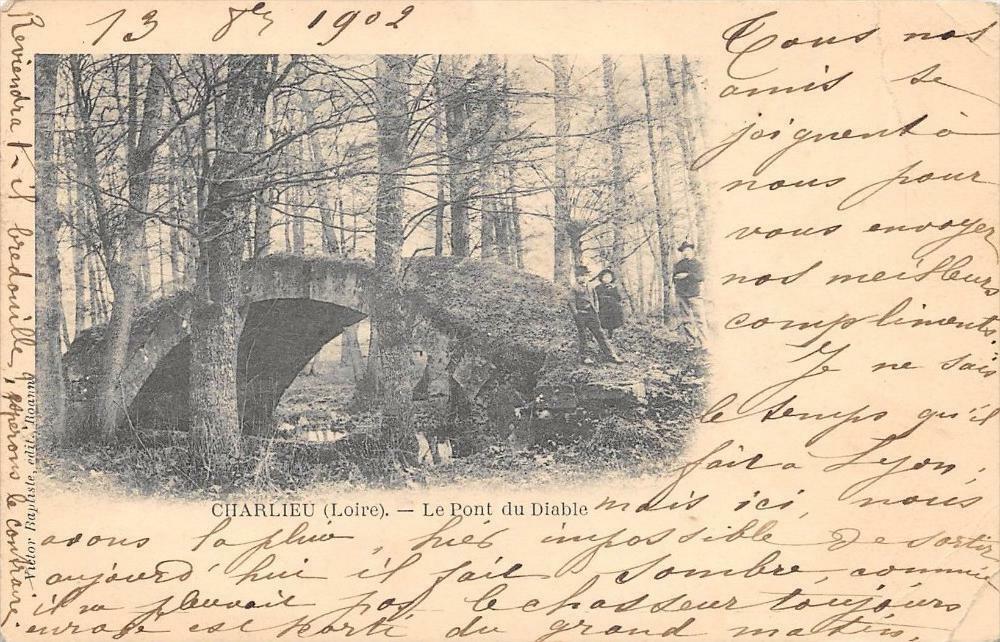 13 8bre 1902
Tous nos
amis se
joignent à
nous pour
vous envoyer
nos meilleurs
compliments.
Je ne sais
le temps qu'il
fait à Lyon,
CHARLIEU (Loire). — Le Pont du Diable
mais ici, nous
avons la pluie, hier impossible de sortir
aujourd'hui il fait sombre, comme
il ne pleuvait pas le chasseur toujours
enragé est sorti du grand matin
Reviendra t-il bredouille, espérons le contraire.
Victor Baptiste, édit. Roanne